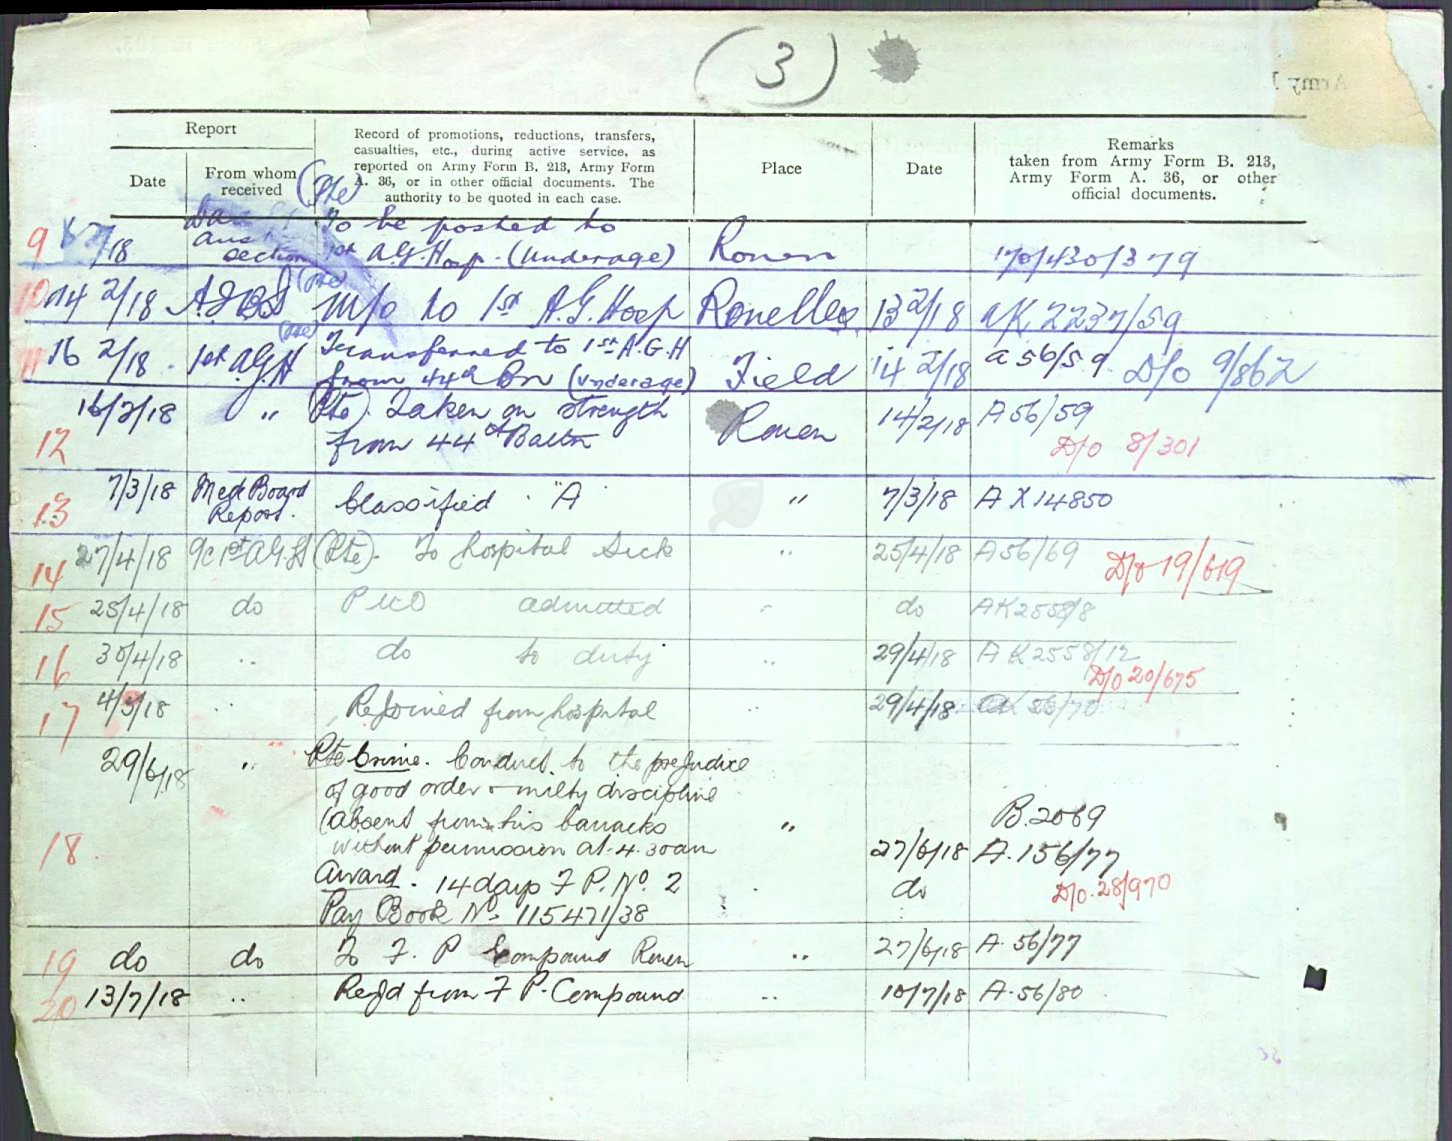 (3)
Report
Record of promotions, reductions, transfers,
casualties, etc., during active service, as
reported on Army Form B. 213, Army Form
A. 36, or in other official documents. The
authority to be quoted in each case.
Date
From whom
received
Place
Date
Remarks
taken from Army Form B. 213,
Army Form A. 36, or other
official documents.
(Pte)
9 /18 section To be posted to
1st A.G.Hosp. (Underage) Rouen 170/430/379
10 14 2/18 (Pte) to 1st A.G.Hosp Rouelles 13 2/18 AK 2237/59
11 16 2/18 1st A.G.H (Pte) Transferred to 1st A.G.H
from 44th Bn (Underage) Field 14 2/18 A 56/59 D/o 9/862
12 16/2/18 " (Pte). Taken on strength
from 44th Battn Rouen 14/2/18 A 56/59
D/o 8/301
13 7/3/18 Med Board
Report. Classified "A" " 7/3/18 A X 14850
14 27/4/18 1st A.G.H (Pte). To hospital Sick " 25/4/18 A 56/69 D/o 19/619
15 25/4/18 do P U O admitted " do AK 2558/8
16 30/4/18 " do to duty " 29/4/18 AK 2558/12
D/o 20/675
17 4/5/18 " Rejoined from hospital " 29/4/18 56/70
18 29/6/18 " Pte Crime. Conduct to the prejudice
of good order & milty discipline
(absent from his barracks
without permission at 4.30am "
B.2069
27/6/18 A.156/77
Award. 14 days F.P. No. 2 do D/o 28/970
Pay Book No. 115471/38
19 do do To F. P Compound Rouen " 27/6/18 A.56/77
20 13/7/18 " Rejd from F P. Compound " 10/7/18 A.56/80